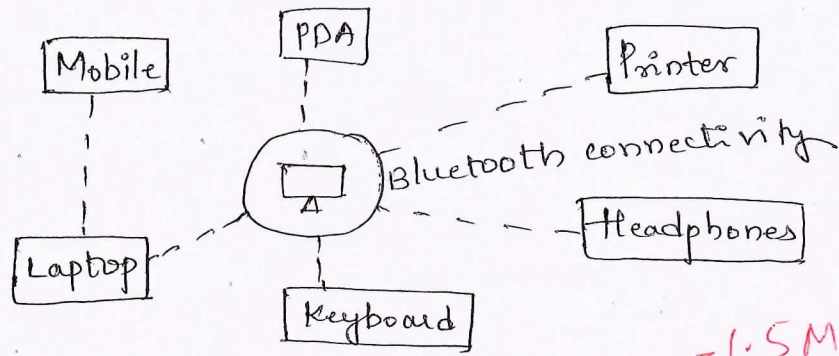 PDA
Mobile
Printer
Bluetooth connectivity
Headphones
Laptop
Keyboard
-1.5M